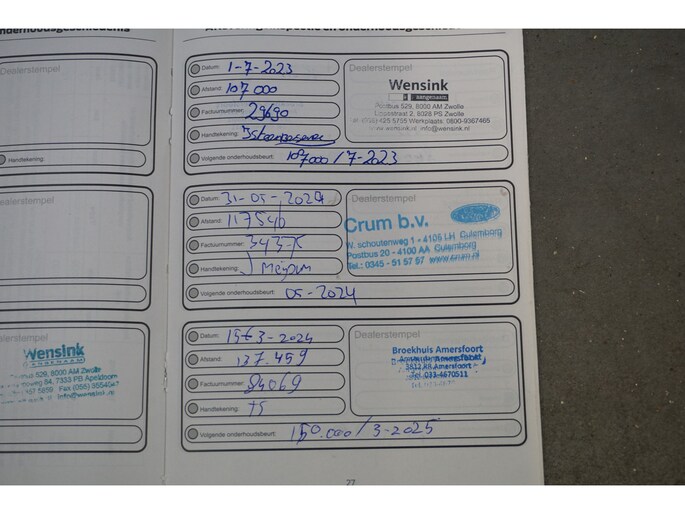 Dealerstempel
Handtekening:
Wensink
529, 8000 AM Zwolle
84, 7333 PB Apeldoorn
info@wensink.nl
Datum: 1-7-2023
Afstand: 107000
Factuurnummer: 29690
Handtekening:
Volgende onderhoudsbeurt: 107000/7-2023
Dealerstempel
Wensink
Postbus 529, 8000 AM Zwolle
2, 8028 PS Zwolle
5735 Werkplaats: 0800-9367465
www.wensink.nl info@wensink.nl
Datum: 31-05-2024
Afstand: 117546
Factuurnummer:
Handtekening:
Volgende onderhoudsbeurt: 05-2024
Dealerstempel
Crum b.v.
W. schoutenweg 1 - 4105 LH Culemborg
Postbus 20 - 4100 AA Culemborg
Tel.: 0345 - 51 57 97 www.crum.nl
Datum: 3-2024
Afstand: 137.459
Factuurnummer: 84069
Handtekening: TS
Volgende onderhoudsbeurt: 150.000/3-2025
Dealerstempel
Broekhuis Amersfoort
3812 RR Amersfoort
Tel. 033-4670511
77